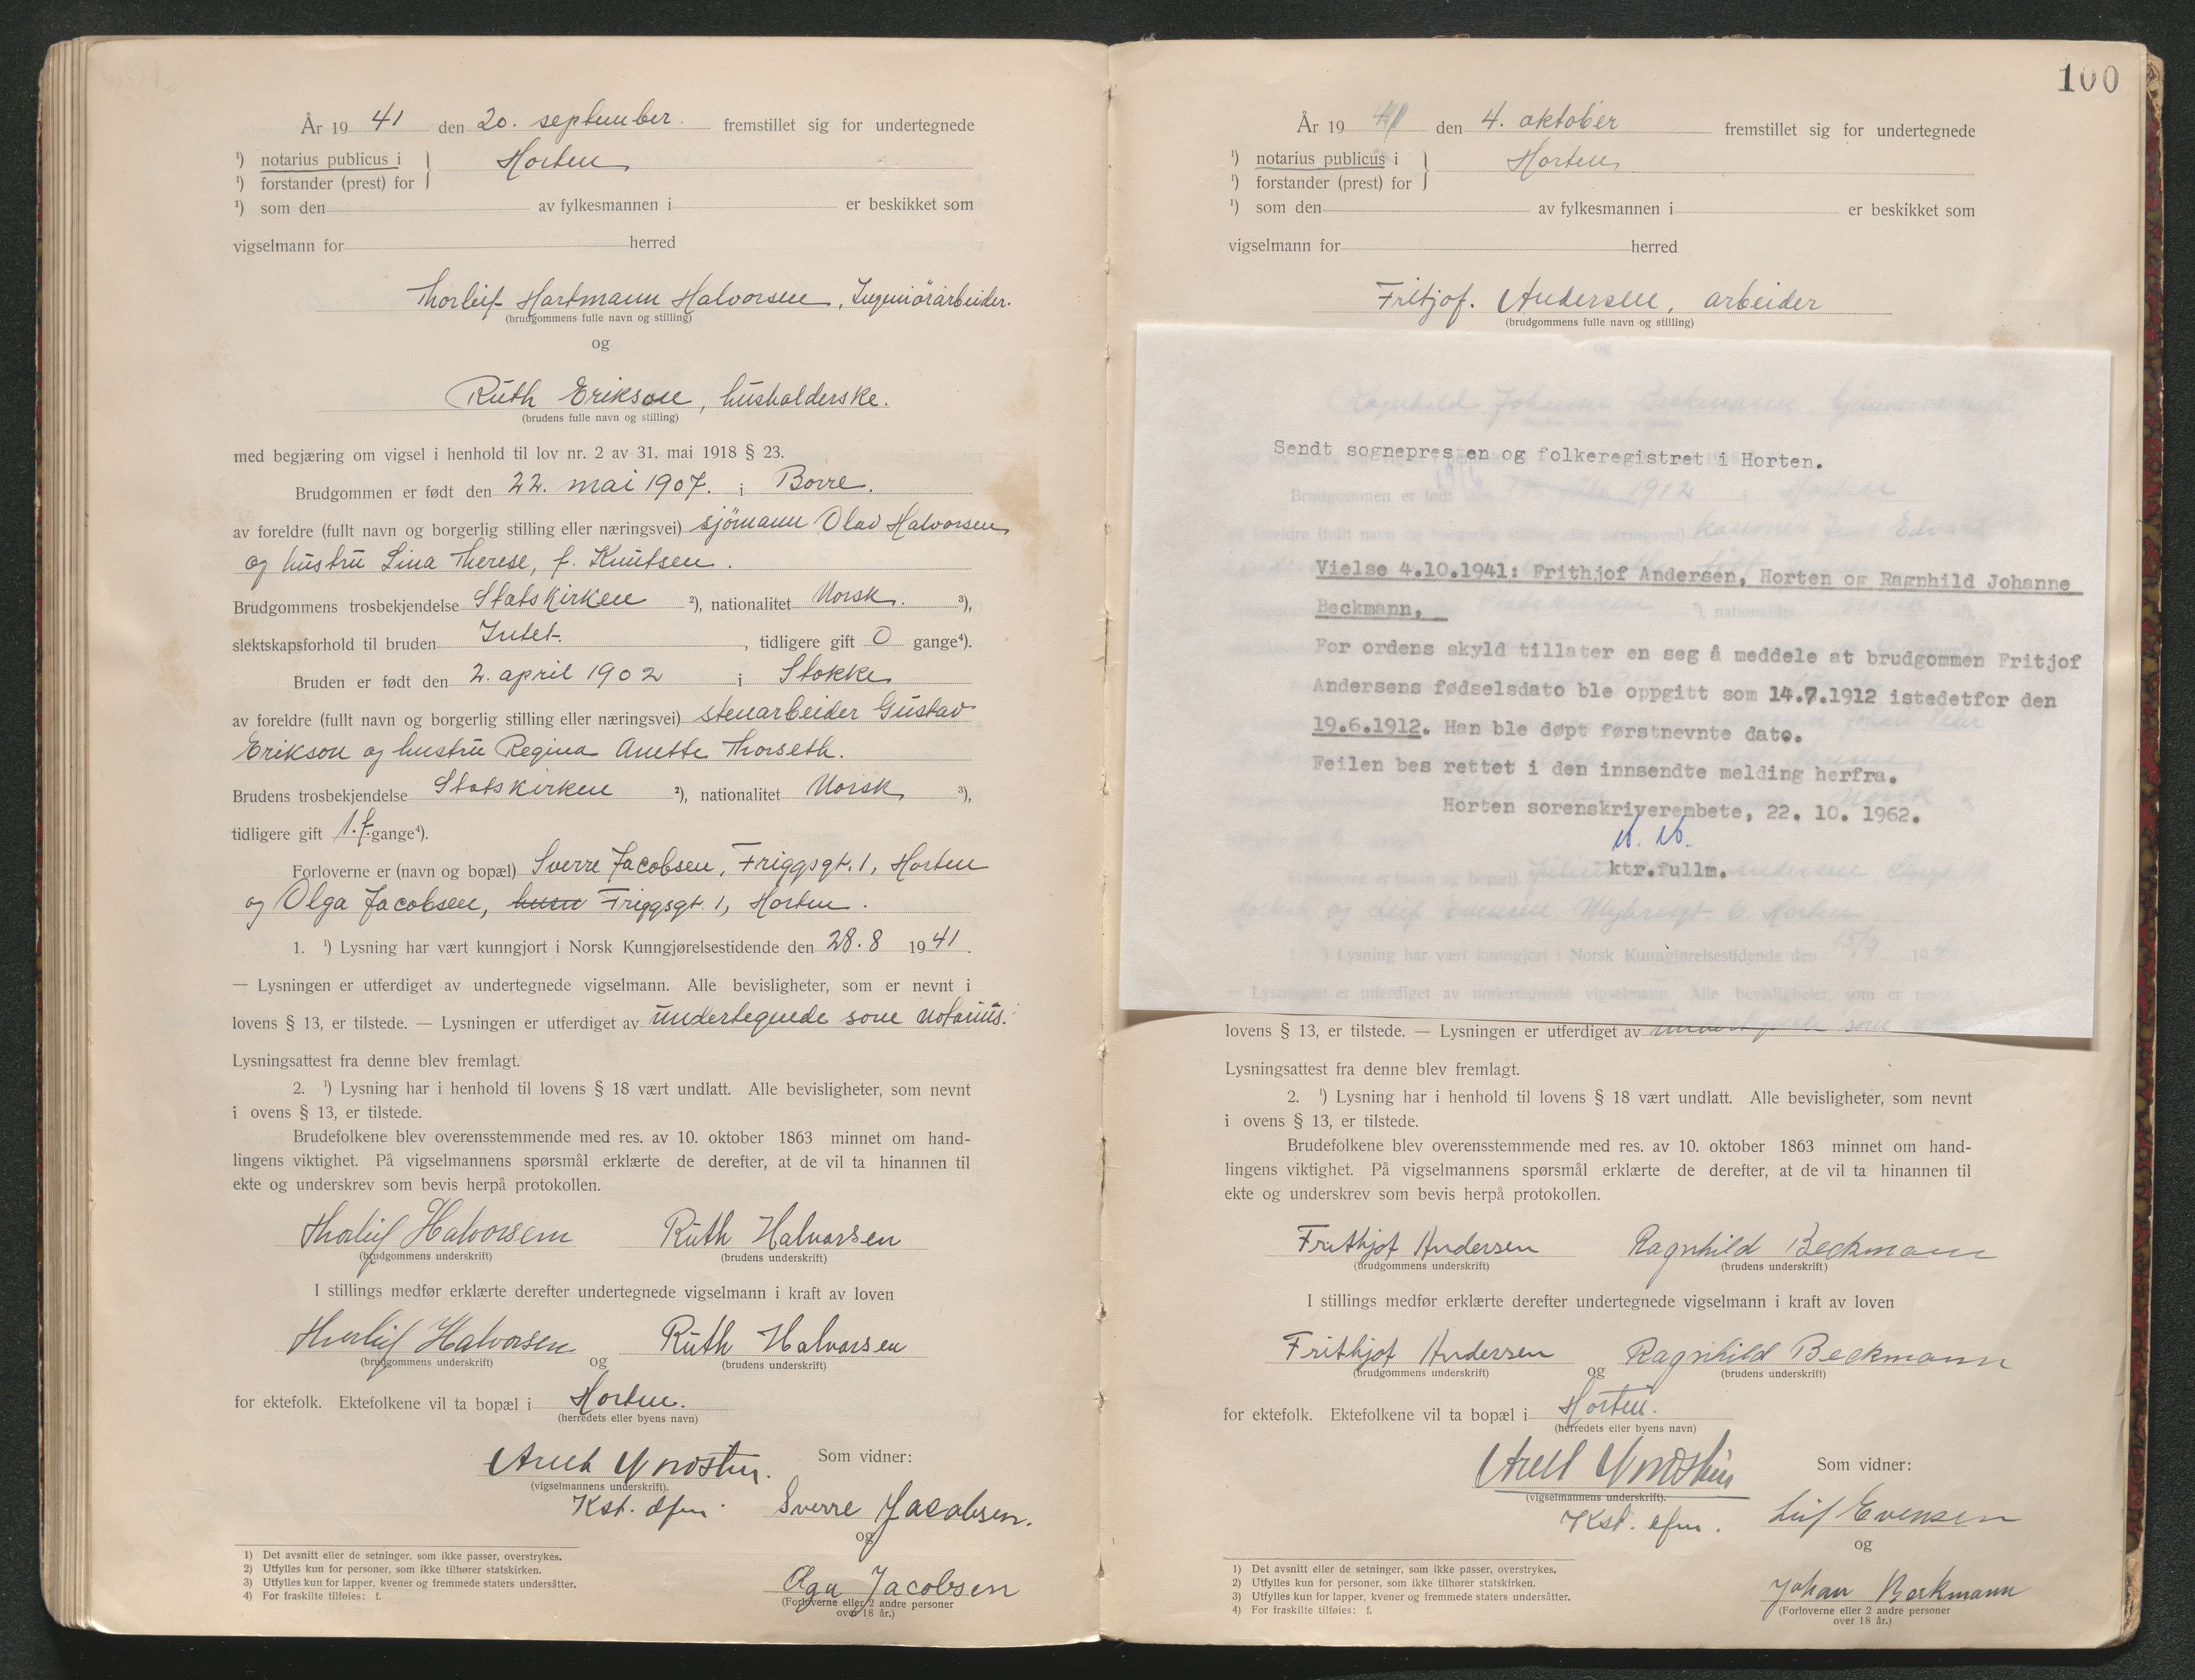 År 19 41 den 20. september. fremstillet sig for undertegnede
¹) notarius publicus i } Horten
¹) forstander (prest) for
¹) som den av fylkesmannen i er beskikket som
vigselmann for herred
Thorleif Hartmann Halvorsen, Ingeniörarbeider.
(brudgommens fulle navn og stilling)
og
Ruth Erikson, husholderske.
(brudens fulle navn og stilling)
med begjæring om vigsel i henhold til lov nr. 2 av 31. mai 1918 § 23.
Brudgommen er født den 22. mai 1907. i Borre.
av foreldre (fullt navn og borgerlig stilling eller næringsvei) sjömann Olav Halvorsen
og hustru Lina Therese, f. Knutsen.
Brudgommens trosbekjendelse Statskirken ²), nationalitet Norsk. ³),
slektskapsforhold til bruden Intet. , tidligere gift 0 gange⁴).
Bruden er født den 2. april 1902 i Stokke
av foreldre (fullt navn og borgerlig stilling eller næringsvei) stenarbeider Gustav
Erikson og hustru Regina Anette Thorseth.
Brudens trosbekjendelse Statskirken ²), nationalitet Norsk ³),
tidligere gift 1. f. gange⁴).
Forloverne er (navn og bopæl) Sverre Jacobsen, Friggsgt. 1, Horten
og Olga Jacobsen, Friggsgt. 1, Horten.
1. ¹) Lysning har vært kunngjort i Norsk Kunngjørelsestidende den 28.8 1941.
— Lysningen er utferdiget av undertegnede vigselmann. Alle bevisligheter, som er nevnt i
lovens § 13, er tilstede. — Lysningen er utferdiget av undertegnede som notarius.
Lysningsattest fra denne blev fremlagt.
2. ¹) Lysning har i henhold til lovens § 18 vært undlatt. Alle bevisligheter, som nevnt
i ovens § 13, er tilstede.
Brudefolkene blev overensstemmende med res. av 10. oktober 1863 minnet om hand-
lingens viktighet. På vigselmannens spørsmål erklærte de derefter, at de vil ta hinannen til
ekte og underskrev som bevis herpå protokollen.
Thorleif Halvorsen Ruth Halvorsen
(brudgommens underskrift) (brudens underskrift)
I stillings medfør erklærte derefter undertegnede vigselmann i kraft av loven
Thorleif Halvorsen og Ruth Halvorsen
(brudgommens underskrift) (brudens underskrift)
for ektefolk. Ektefolkene vil ta bopæl i Horten.
(herredets eller byens navn)
Som vidner:
(vigselmannens underskrift).
Kst. dfm. Sverre Jacobsen.
og
Olga Jacobsen
(Forloverne eller 2 andre personer
over 18 år.)
1) Det avsnitt eller de setninger, som ikke passer, overstrykes.
2) Utfylles kun for personer, som ikke tilhører statskirken.
3) Utfylles kun for lapper, kvener og fremmede staters undersåtter.
4) For fraskilte tilføies: f.
100
År 19 41 den 4. oktober fremstillet sig for undertegnede
¹) notarius publicus i } Horten
¹) forstander (prest) for
¹) som den av fylkesmannen i er beskikket som
vigselmann for herred
Fritjof. Andersen, arbeider
(brudgommens fulle navn og stilling)
Sendt sognepres en og folkeregistret i Horten.
Vielse 4.10.1941: Frithjof Andersen, Horten og Ragnhild Johanne
Beckmann,
For ordens skyld tillater en seg å meddele at brudgommen Fritjof
Andersens fødselsdato ble oppgitt som 14.7.1912 istedetfor den
19.6.1912. Han ble døpt førstnevnte dato.
Feilen bes rettet i den innsendte melding herfra.
Horten sorenskriverembete, 22. 10. 1962.
ktr.fullm.
lovens § 13, er tilstede. — Lysningen er utferdiget av undertegnede som
Lysningsattest fra denne blev fremlagt.
2. ¹) Lysning har i henhold til lovens § 18 vært undlatt. Alle bevisligheter, som nevnt
i ovens § 13, er tilstede.
Brudefolkene blev overensstemmende med res. av 10. oktober 1863 minnet om hand-
lingens viktighet. På vigselmannens spørsmål erklærte de derefter, at de vil ta hinannen til
ekte og underskrev som bevis herpå protokollen.
Frithjof Andersen Ragnhild Beckmann
(brudgommens underskrift) (brudens underskrift)
I stillings medfør erklærte derefter undertegnede vigselmann i kraft av loven
Frithjof Andersen og Ragnhild Beckmann
(brudgommens underskrift) (brudens underskrift)
for ektefolk. Ektefolkene vil ta bopæl i Horten.
(herredets eller byens navn)
Som vidner:
(vigselmannens underskrift).
Kst. dfm. Leif Evensen
og
Johan Beckmann
(Forloverne eller 2 andre personer
over 18 år.)
1) Det avsnitt eller de setninger, som ikke passer, overstrykes.
2) Utfylles kun for personer, som ikke tilhører statskirken.
3) Utfylles kun for lapper, kvener og fremmede staters undersåtter.
4) For fraskilte tilføies: f.